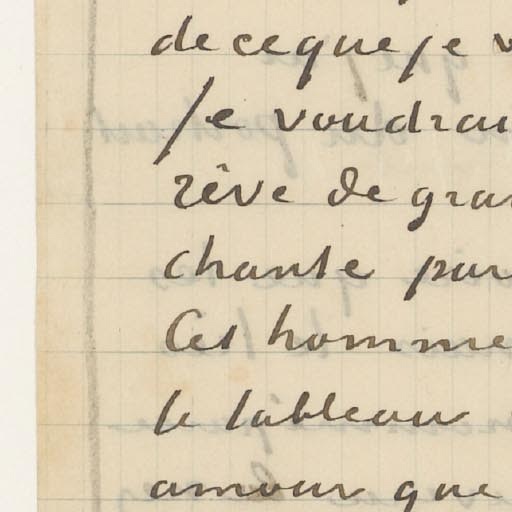 de ce que je v
Je voudrai
rêve de gran
chante par
Cet homme
le tableau
amour que